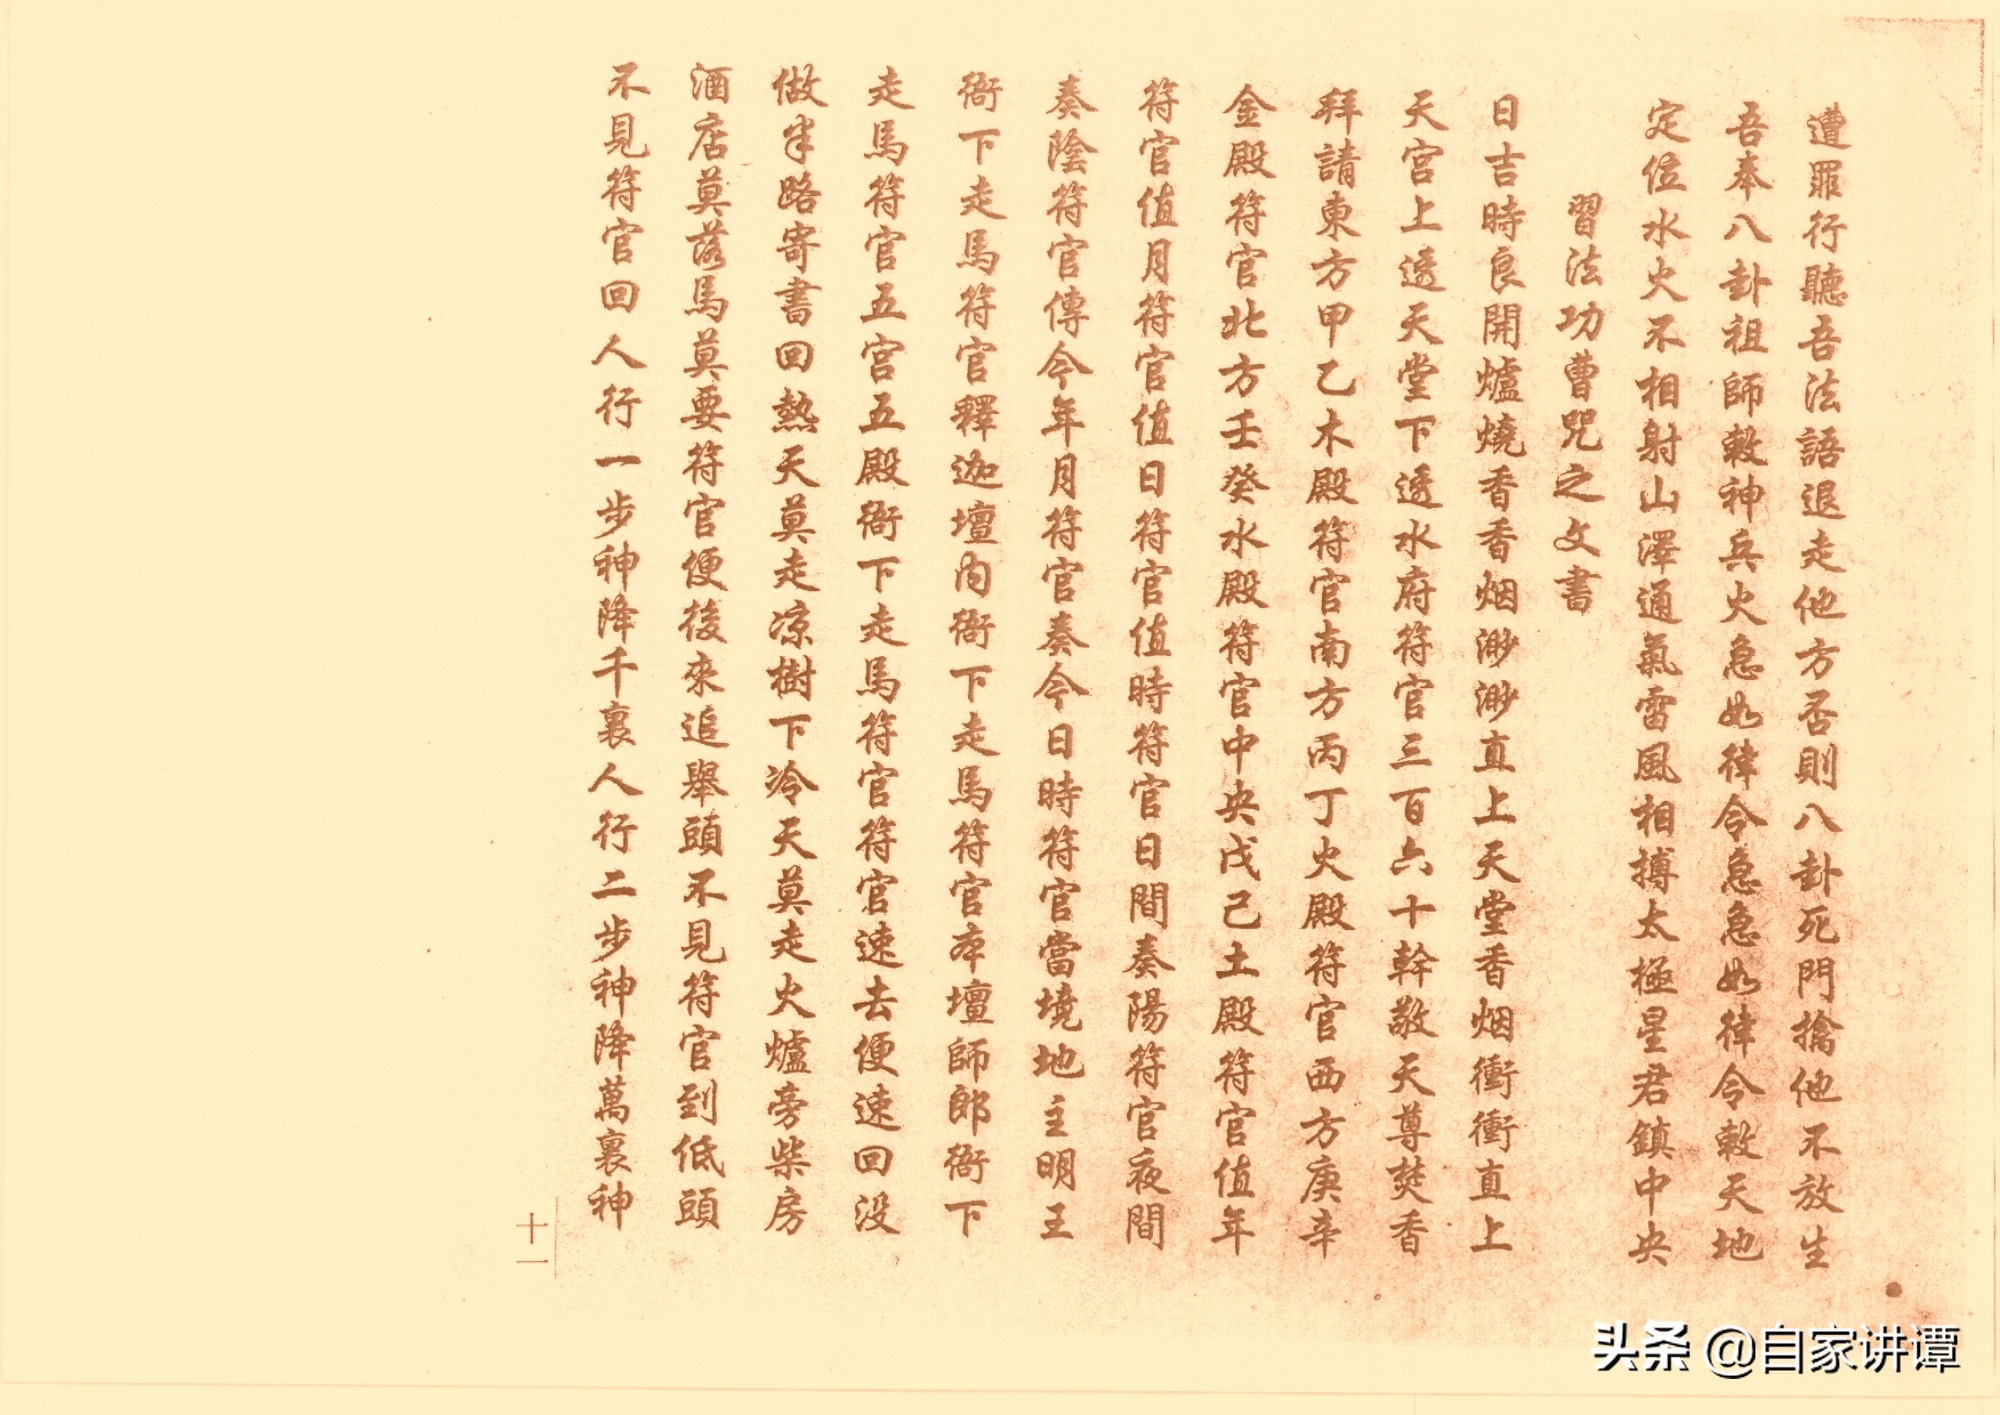 遭罪行聽吾法語退走他方否則八卦死門擒他不放生
吾奉八卦祖師敕神兵火急如律令急急如律令敕天地
定位水火不相射山澤通氣雷風相搏太極星君鎮中央
習法功曹咒之文書
日吉時良開爐燒香香烟渺渺直上天堂香烟衝衝直上
天宮上透天堂下透水府符官三百六十幹敬天尊焚香
拜請東方甲乙木殿符官南方丙丁火殿符官西方庚辛
金殿符官北方壬癸水殿符官中央戊己土殿符官值年
符官值月符官值日符官值時符官日間奏陽符官夜間
奏陰符官傳今年月符官奏今日時符官當境地主明王
衙下走馬符官釋迦壇內衙下走馬符官本壇師郎衙下
走馬符官五宮五殿衙下走馬符官符官速去便速回没
做半路寄書回熱天莫走凉樹下冷天莫走火爐旁柴房
酒店莫落馬莫要符官便後來追舉頭不見符官到低頭
不見符官回人行一步神降千裏人行二步神降萬裏神
十一
头条 @自家讲谭